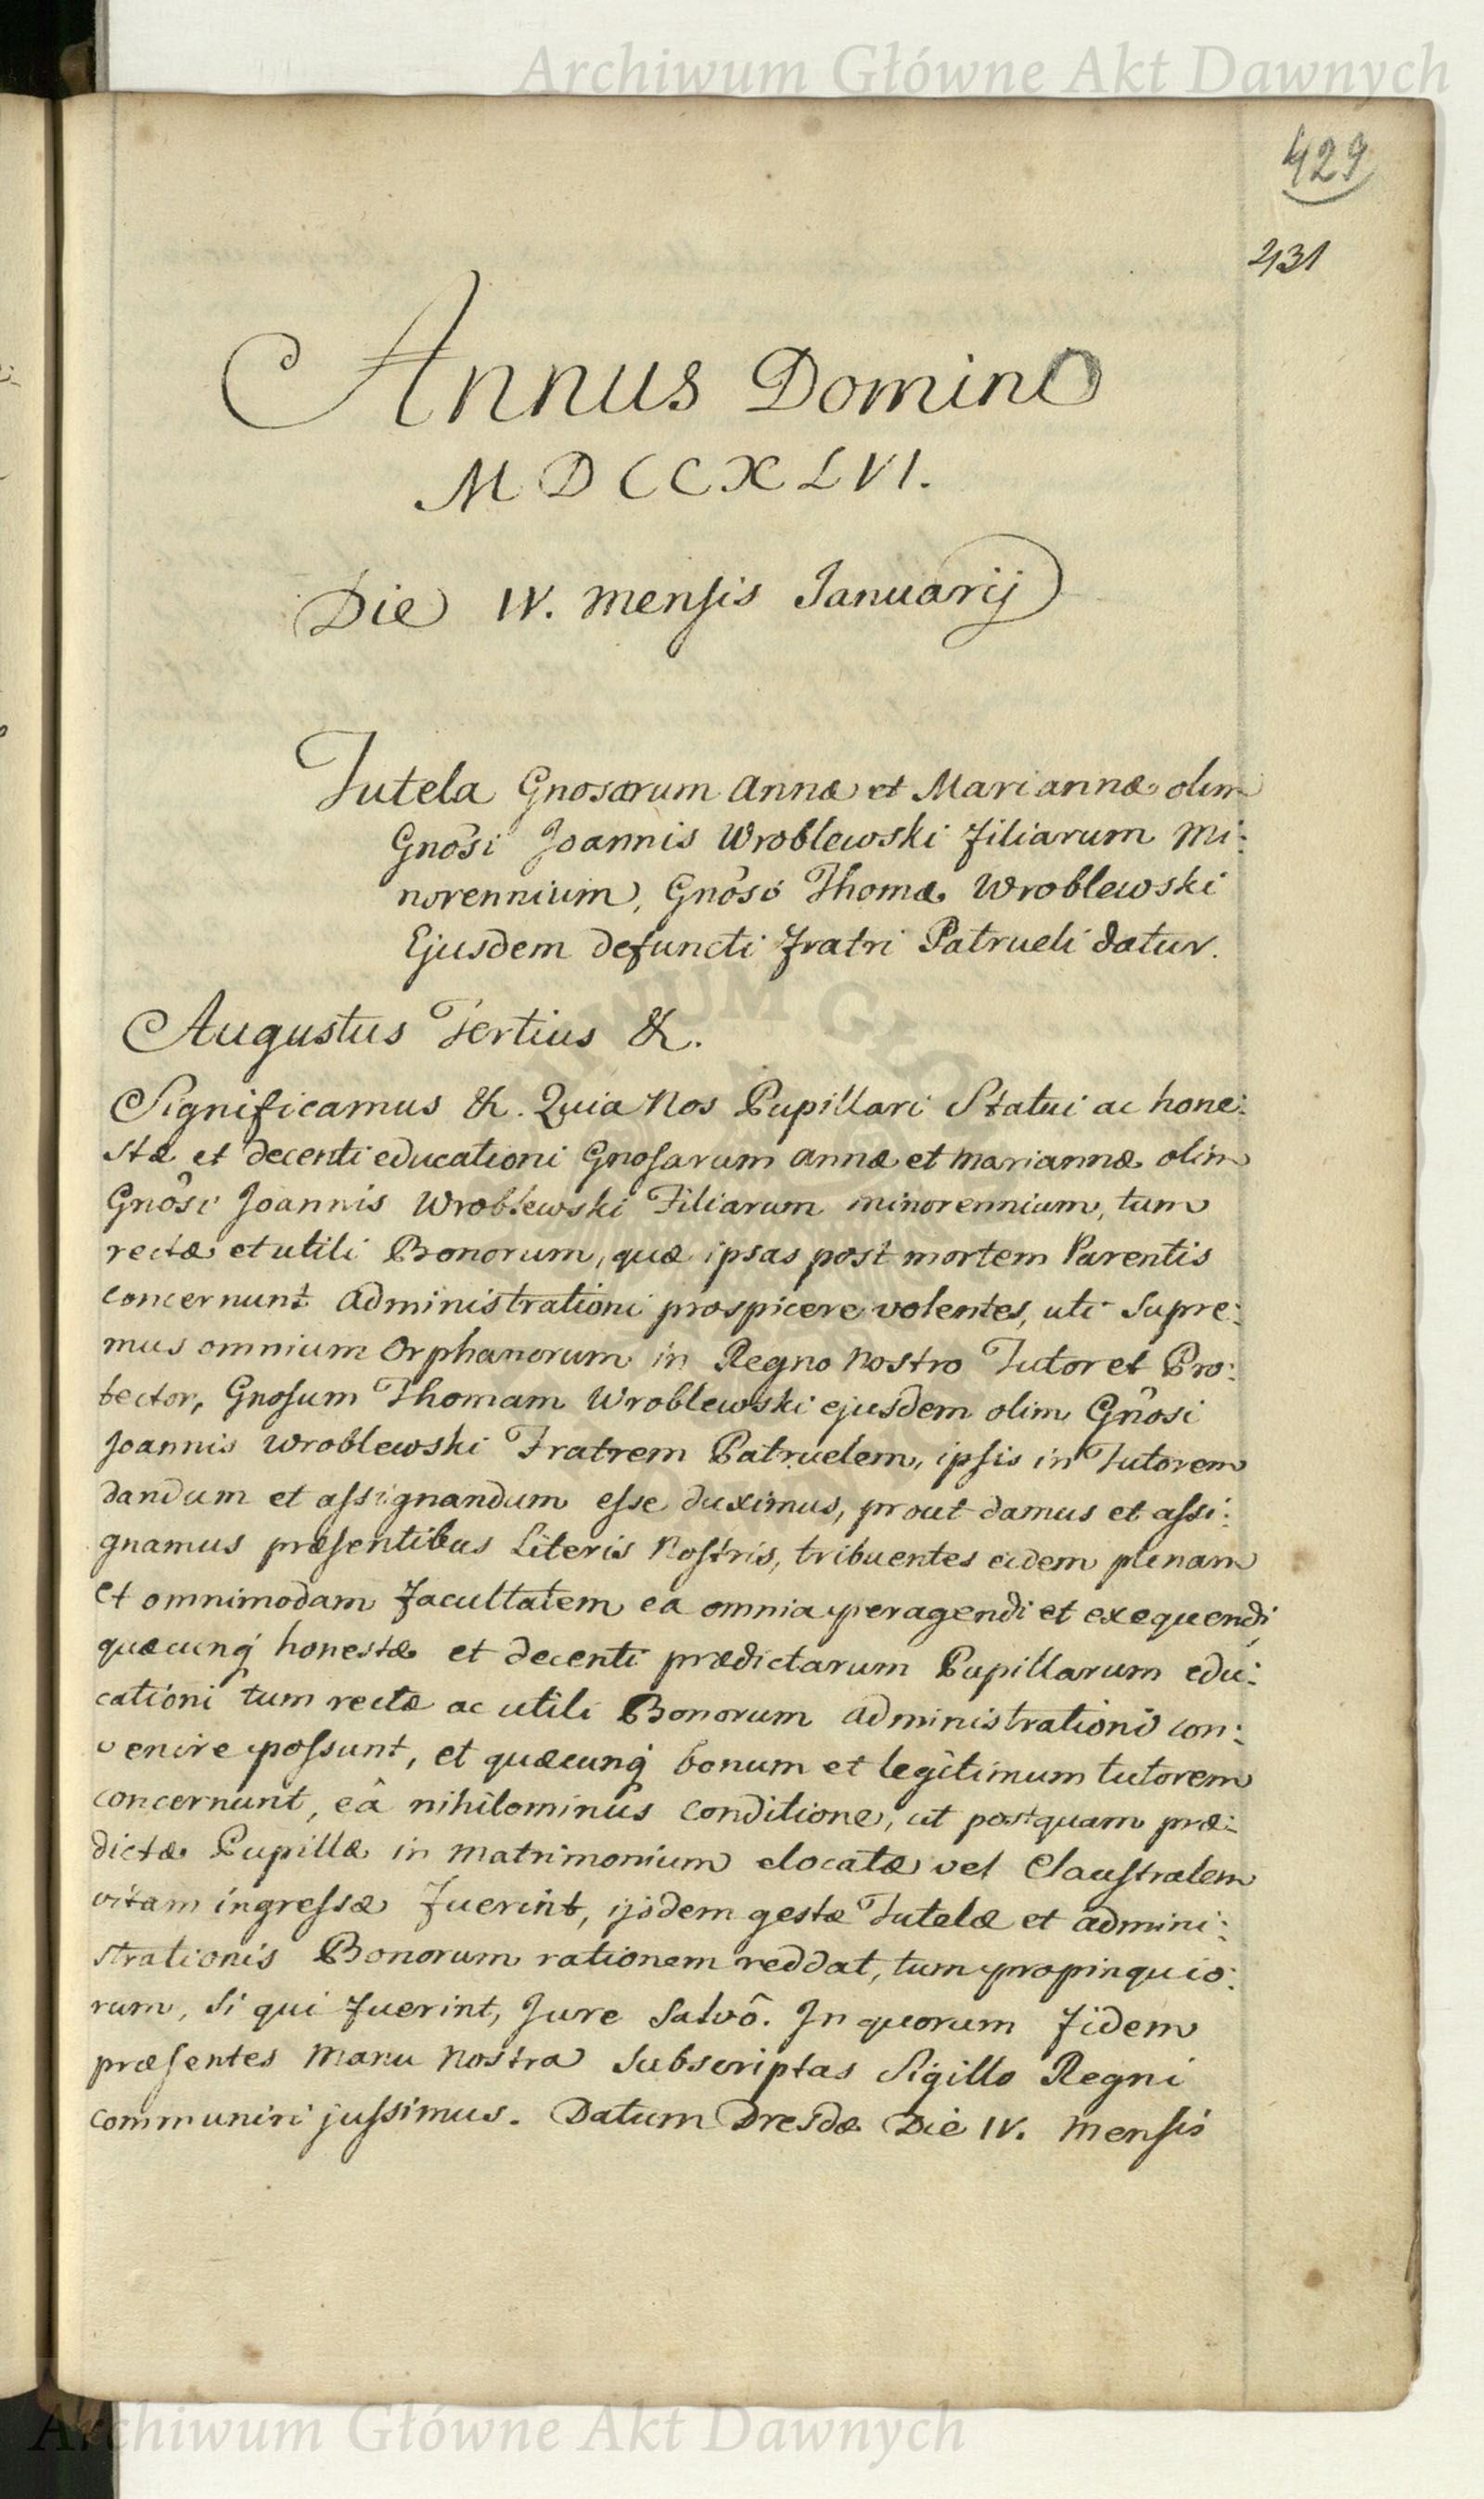 Archiwum Główne Akt Dawnych
429
431
Annus Domini
MDCCXLVI.
Die IV. mensis Januarij
Tutela Gnosarum Annæ et Mariannæ olim
Gnôsi Joannis Wroblewski Filiarum Mi:
norennium, Gnôso Thomæ Wroblewski
Ejusdem defuncti Fratri Patrueli datur.
Augustus Tertius &.
Significamus &. Quia Nos Pupillari Statui ac hone:
stæ et decenti educationi Gnosarum Annæ et Mariannæ olim
Gnôsi Joannis Wroblewski Filiarum minorennium, tum
rectæ et utili Bonorum, quæ ipsas post mortem Parentis
concernunt administrationi prospicere volentes, uti Supre:
mus omnium Orphanorum in Regno Nostro Tutor et Pro:
tector, Gnosum Thomam Wroblewski ejusdem olim Gnôsi
Joannis Wroblewski Fratrem Patruelem, ipsis in Tutorem
dandum et assignandum esse duximus, prout damus et assi:
gnamus præsentibus Literis Nostris, tribuentes eidem plenam
et omnimodam Facultatem ea omnia peragendi et exequendi
quæcunq honestæ et decenti prædictarum Pupillarum edu:
cationi tum rectæ ac utili Bonorum administrationi con:
venire possunt, et quæcunq bonum et legitimum tutorem
concernunt, eâ nihilominus conditione, ut postquam præ:
dictæ Pupillæ in matrimonium elocatæ vel Claustralem
vitam ingressæ Fuerint, ijsdem gestæ Tutelæ et admini:
strationis Bonorum rationem reddat, tum propinquio:
rum, si qui Fuerint, Jure Salvô. In quorum Fidem
præsentes Manu Nostra Subscriptas Sigillo Regni
communiri jussimus. Datum Dresdæ Die IV. Mensis
Archiwum Główne Akt Dawnych